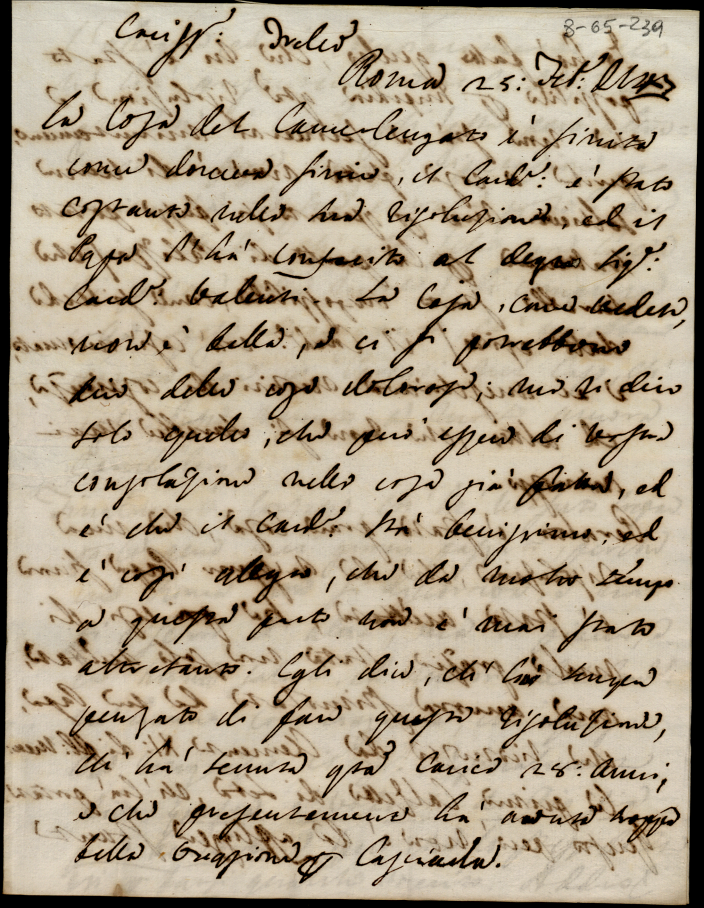 8-65-239
Cariss.º Fratello
Roma 25: Feb.º
La Cosa del Camerlengato è finita
come doveva finire, il Card.le è stato
costante nella sua risoluzione, ed il
Papa l'hà conferito al degno Sig.r
Card.le Valenti. La Cosa, come vedete,
non è bella, e ci si potrebbono
dire delle cose dolorose; mà vi dico
solo quello, che può essere di vostra
consolazione nelle cose già fatte, ed
è che il Card.le stà benissimo, ed
è così allegro, che da molto tempo
a questa parte non è mai stato
altretanto. Egli dice, che hà sempre
pensato di fare questa risoluzione,
che hà tenuta q.ta Carica 28: anni,
e che presentemente hà avuta troppo
bella occasione p lasciarla.